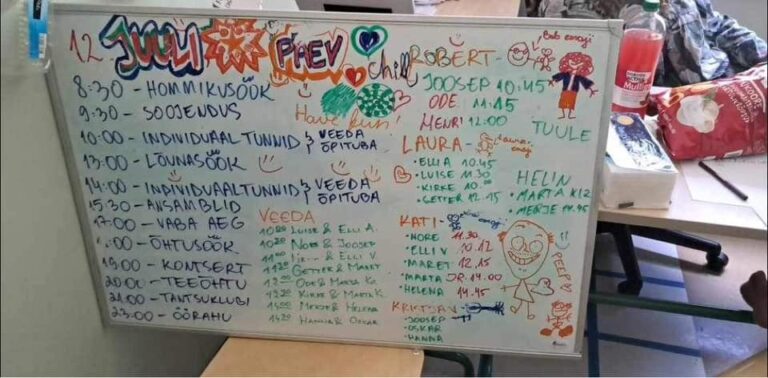 12 JUULI PÄEV
Chill
Have fun!
8:30 - HOMMIKUSÖÖK
9:30 - SOOJENDUS
10:00 - INDIVIDUAALTUNNID } VEEDA ÕPITUBA
13:00 - LÕUNASÖÖK
14:00 - INDIVIDUAALTUNNID } VEEDA ÕPITUBA
15:30 - ANSAMBLID
17:00 - VABA AEG
:00 - ÕHTUSÖÖK
19:00 - KONTSERT
20:00 - TEEÕHTU
21:00 - TANTSUKLUBI
23:00 - ÖÖRAHU
VEEDA
LUISE & ELLI A.
10:20 NORE & JOOSEP
11:00 & ELLI V
11:20 GETTER & MARET
& MARTA K.
KIRKE & MARTA K.
14:00 MERJE & HELENA
14:20 HANNA & OSKAR
ROBERT -
JOOSEP 10:45
ODE 11:15
HENRI 12:00
LAURA -
• ELLIA 10.45
• LUISE 11.30
• KIRKE
• GETTER 12.15
KATI -
• NORE 11.30
• ELLI V
• MARET 12.15
• MARTA 14.00
• HELENA 14.45
KRISTJAN -
• JOOSEP
• OSKAR
• HANNA
Bob emoji
TUULE
HELIN
• MARTA K
• MERJE
PEEP